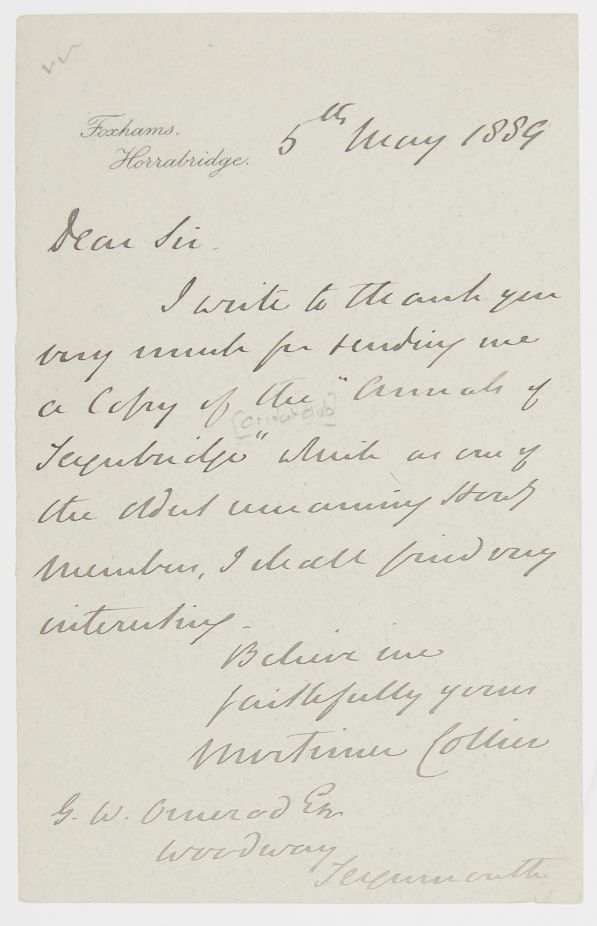 Foxhams.
Horrabridge.
5th May 1889
Dear Sir.
I write to thank you
very much for sending me
a Copy of the "Annals of
[Cricket club]
Teignbridge" which as one of
the oldest remaining Hony
Members, I shall find very
interesting.
Believe me
faithfully yours
Mortimer Collier
G. W. Ormerod Esq
Woodway
Teignmouth